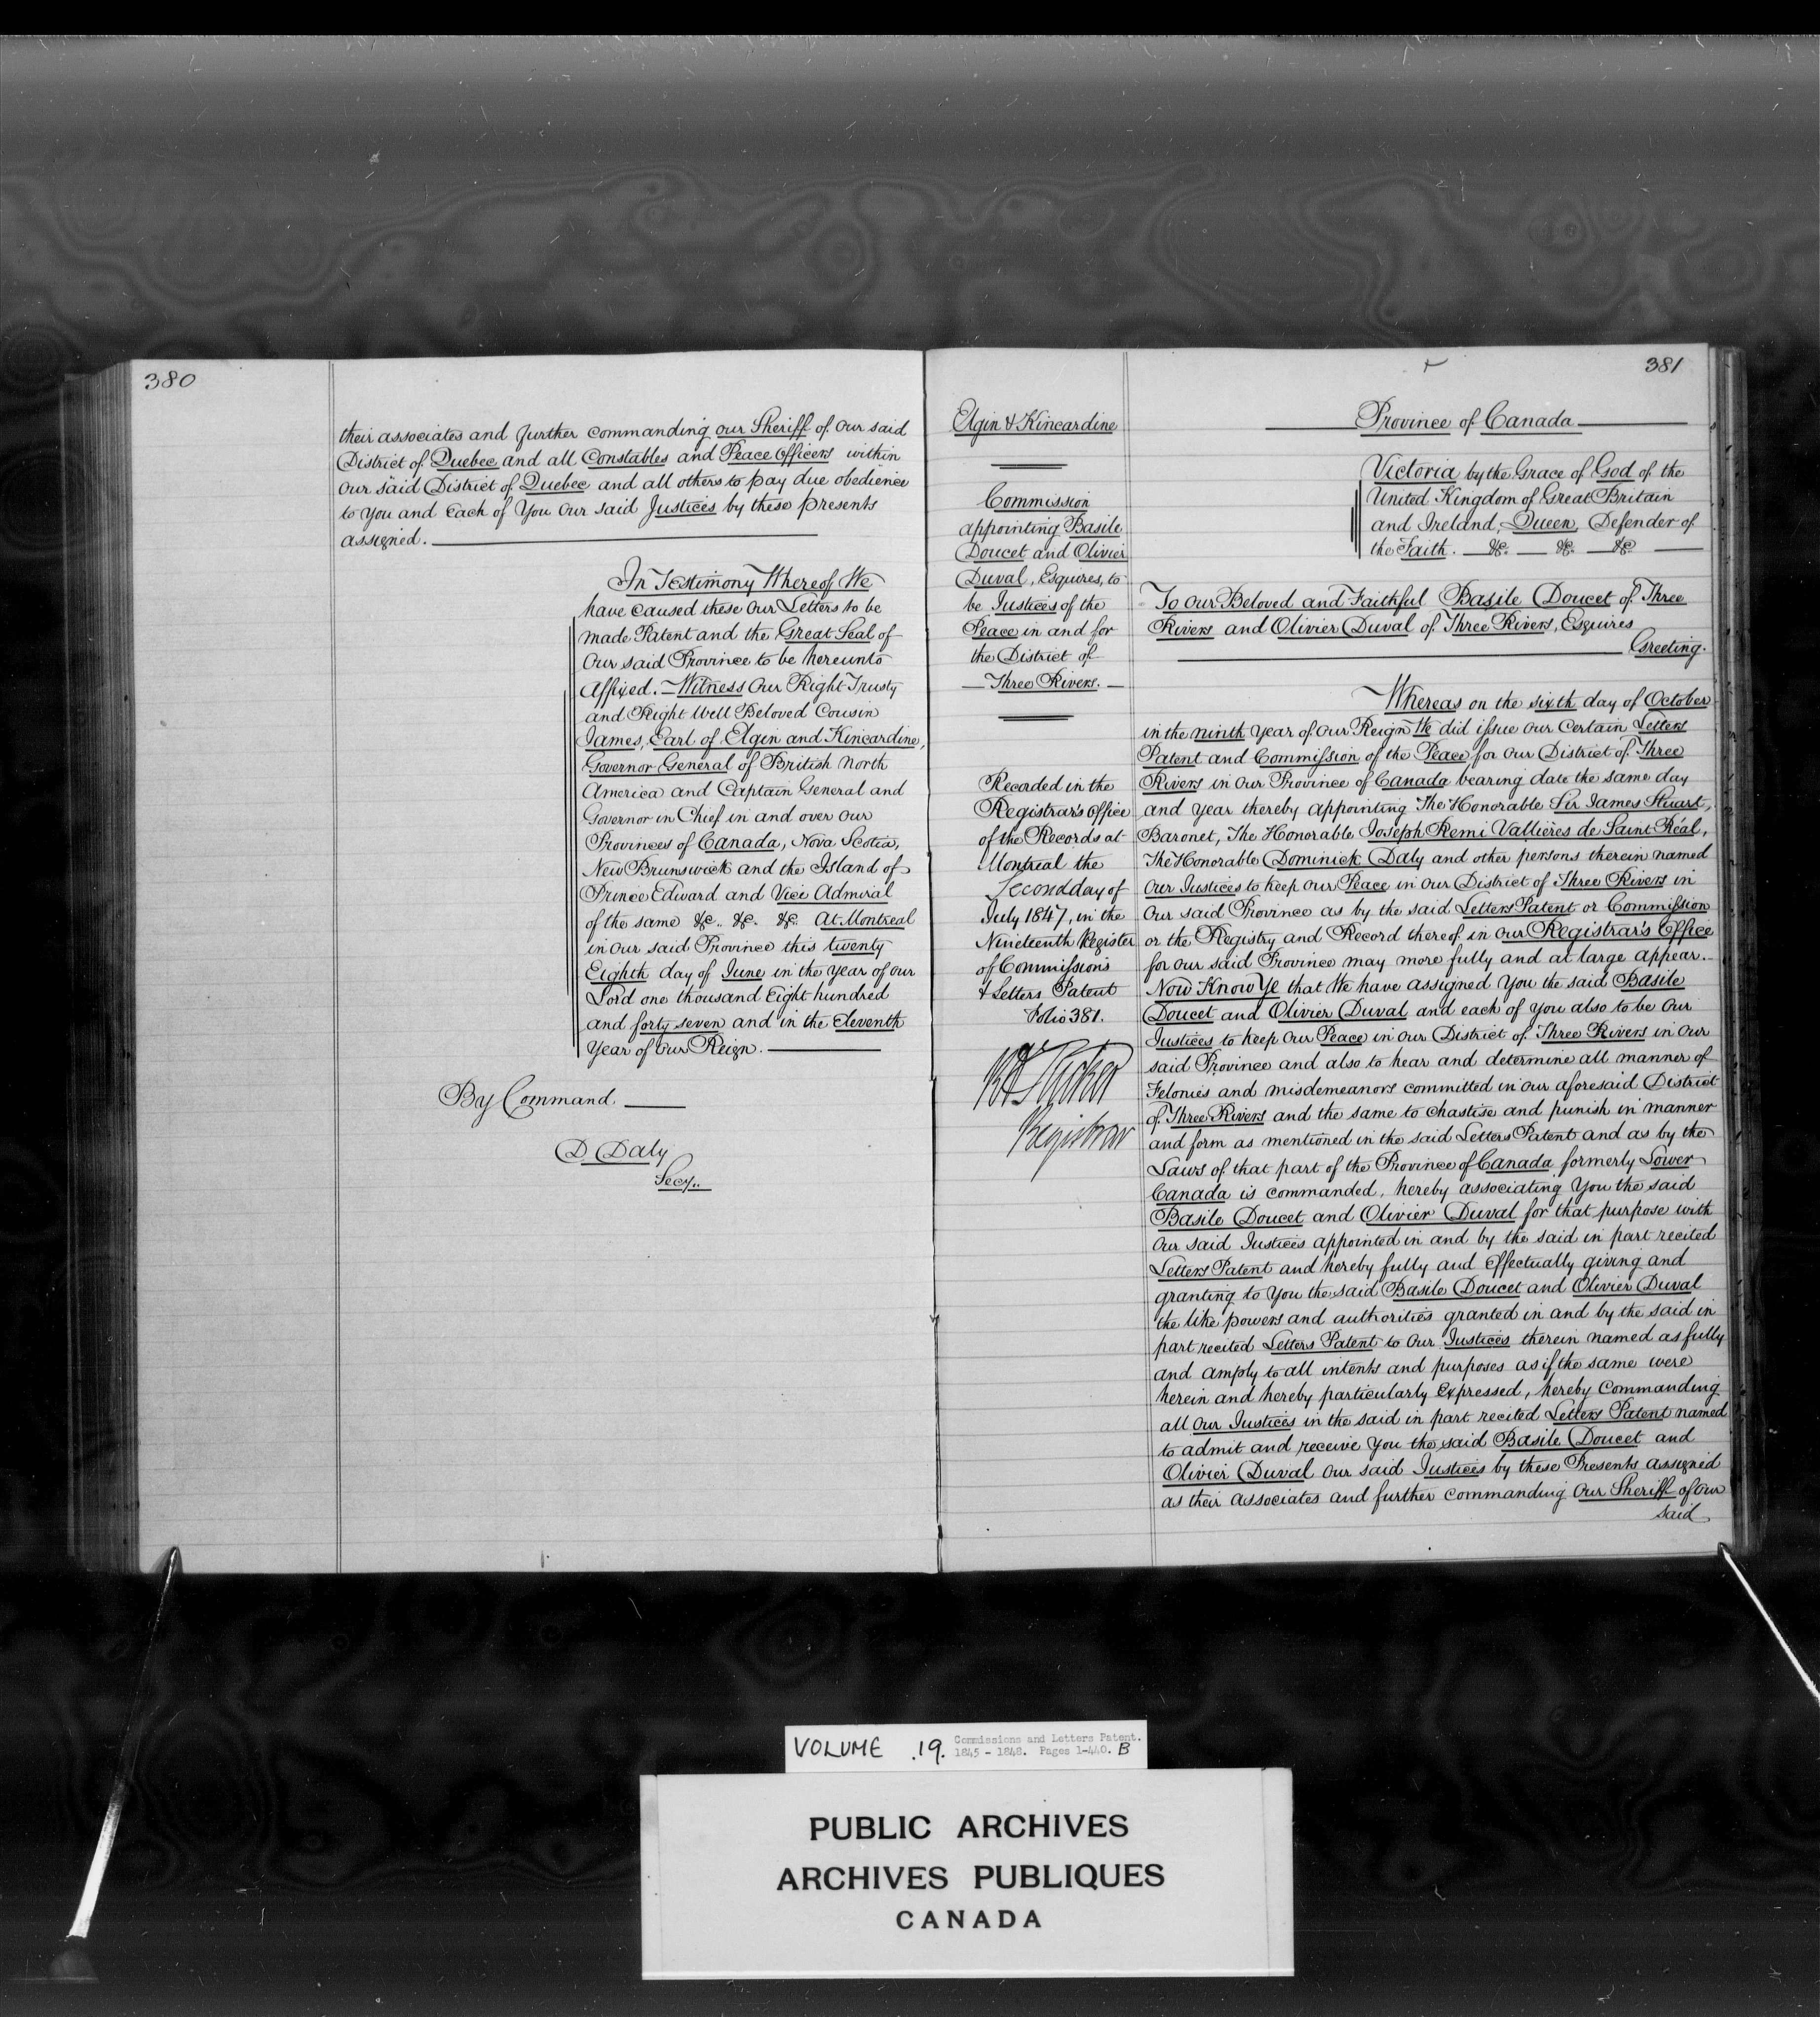 380
their associates and further commanding our Sheriff of our said
District of Quebec and all Constables and Peace Officers within
our said District of Quebec and all others to pay due obedience
to you and Each of You Our said Justices by these presents
assigned.
In Testimony Whereof We
have caused these Our Letters to be
made Patent and the Great Seal of
Our said Province to be hereunto
Affixed. Witness Our Right Trusty
and Right Well Beloved Cousin
James, Earl of Elgin and Kincardine,
Governor General of British North
America and Captain General and
Governor in Chief in and over our
Provinces of Canada, Nova Scotia,
New Brunswick and the Island of
Prince Edward and Vice Admiral
of the same &c.. &c. &c. At Montreal
in our said Province this twenty
Eighth day of June in the year of our
Lord one thousand Eight hundred
and forty seven and in the Eleventh
Year of Our Reign.
By Command.
D. Daly
Secy..
381
Elgin & Kincardine
Commission
appointing Basile
Doucet and Olivier
Duval, Esquires, to
be Justices of the
Peace in and for
the District of
Three Rivers.
Recorded in the
Registrar's Office
of the Records at
Montreal the
Second day of
July 1847, in the
Nineteenth Register
of Commissions
& Letters Patent
Folio 381.
Registrar
Province of Canada
Victoria by the Grace of God of the
United Kingdom of Great Britain
and Ireland, Queen, Defender of
the Faith. &c. &c. &c
To Our Beloved and Faithful Basile Doucet of Three
Rivers and Olivier Duval of Three Rivers, Esquires
Greeting.
Whereas on the sixth day of October
in the ninth year of our Reign We did issue our Certain Letters
Patent and Commission of the Peace for our District of Three
Rivers in our Province of Canada bearing date the same day
and year thereby appointing The Honorable Sir James Stuart,
Baronet, The Honorable Joseph Remi Vallières de Saint Réal,
The Honorable Dominick Daly and other persons therein named
our Justices to keep our Peace in our District of Three Rivers in
our said Province as by the said Letters Patent or Commission
or the Registry and Record thereof in our Registrar's Office
for our said Province may more fully and at large appear.
Now Know Ye that We have assigned You the said Basile
Doucet and Olivier Duval and each of you also to be Our
Justices to keep Our Peace in our District of Three Rivers in our
said Province and also to hear and determine all manner of
Felonies and misdemeanors committed in our aforesaid District
of Three Rivers and the same to chastise and punish in manner
and form as mentioned in the said Letters Patent and as by the
Laws of that part of the Province of Canada formerly Lower
Canada is commanded, hereby associating You the said
Basile Doucet and Olivier Duval for that purpose with
our said Justices appointed in and by the said in part recited
Letters Patent and hereby fully and effectually giving and
granting to You the said Basile Doucet and Olivier Duval
the like powers and authorities granted in and by the said in
part recited Letters Patent to our Justices therein named as fully
and amply to all intents and purposes as if the same were
herein and hereby particularly Expressed, hereby Commanding
all our Justices in the said in part recited Letters Patent named
to admit and receive You the said Basile Doucet and
Olivier Duval our said Justices by these Presents assigned
as their associates and further commanding Our Sheriff of our
said
VOLUME .19. Commissions and Letters Patent.
1845 - 1848. Pages 1-440. B
PUBLIC ARCHIVES
ARCHIVES PUBLIQUES
CANADA